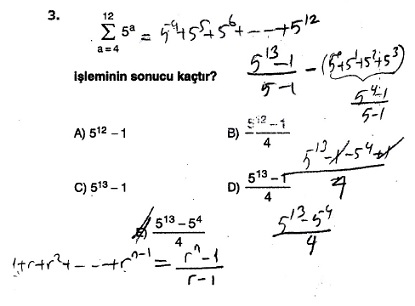 3. 12 Σ a = 4 5ᵃ = 5⁴+5⁵+5⁶+---+5¹²
işleminin sonucu kaçtır?
(5¹³-1)/(5-1) - (5⁰+5¹+5²+5³)
(5⁴-1)/(5-1)
A) 5¹² – 1
B) (5¹² – 1)/4
(5¹³-1-5⁴+1)/4
C) 5¹³ – 1
D) (5¹³ – 1)/4
E) (5¹³ – 5⁴)/4
(5¹³-5⁴)/4
1+r+r²+---+rⁿ⁻¹ = (rⁿ-1)/(r-1)